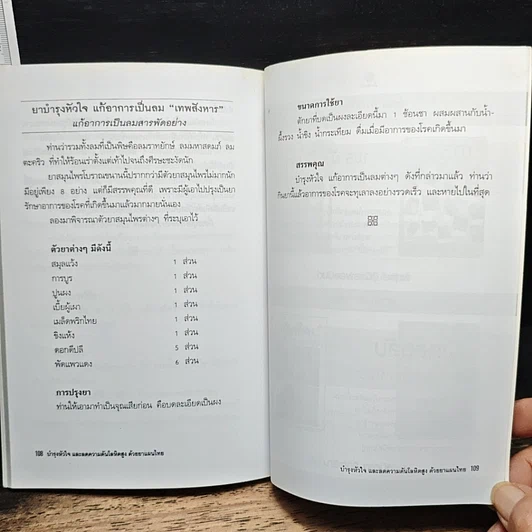 ยาบำรุงหัวใจ แก้อาการเป็นลม “เทพสังหาร”
แก้อาการเป็นลมสารพัดอย่าง
ท่านว่ารวมทั้งลมที่เป็นพิษคือลมราทยักษ์ ลมมหาสดมภ์ ลม
ตะคริว ที่ทำให้ร้อนเร่าตั้งแต่เท้าไปจนถึงศีรษะชะงัดนัก
ยาสมุนไพรโบราณขนานนี้ปรากฏว่ามีตัวยาสมุนไพรไม่มากนัก
มีอยู่เพียง 8 อย่าง แต่ก็มีสรรพคุณที่ดี เพราะมีผู้เอาไปปรุงเป็นยา
รักษาอาการของโรคที่เกิดขึ้นมาแล้วมากมายนั่นเอง
ลองมาพิจารณาตัวยาสมุนไพรต่างๆ ที่ระบุเอาไว้
ตัวยาต่างๆ มีดังนี้
สมุลแว้ง 1 ส่วน
การบูร 1 ส่วน
ปูนผง 1 ส่วน
เบี้ยผู้เผา 1 ส่วน
เมล็ดพริกไทย 1 ส่วน
ขิงแห้ง 1 ส่วน
ดอกดีปลี 5 ส่วน
พัดแพวแดง 6 ส่วน
การปรุงยา
ท่านให้เอามาทำเป็นจุณเสียก่อน คือบดละเอียดเป็นผง
108 บำรุงหัวใจ และลดความดันโลหิตสูง ด้วยยาแผนไทย
ขนาดการใช้ยา
ตักยาที่บดเป็นผงละเอียดนี้มา 1 ช้อนชา ผสมผสานกับน้ำ-
ผึ้งรวง น้ำขิง น้ำกระเทียม ดื่มเมื่อมีอาการของโรคเกิดขึ้นมา
สรรพคุณ
บำรุงหัวใจ แก้อาการเป็นลมต่างๆ ดังที่กล่าวมาแล้ว ท่านว่า
กินยานี้แล้วอาการของโรคจะทุเลาลงอย่างรวดเร็ว และหายไปในที่สุด
บำรุงหัวใจ และลดความดันโลหิตสูง ด้วยยาแผนไทย 109